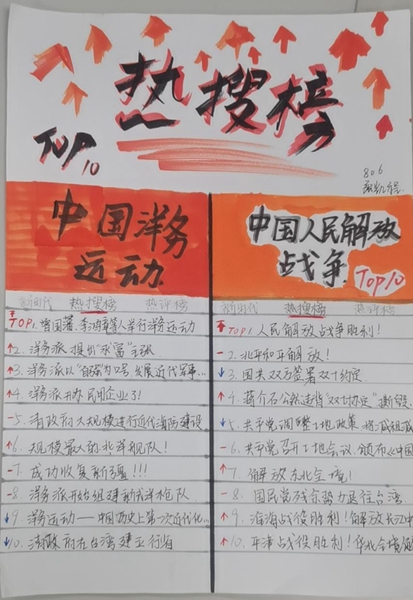 热搜榜
TOP10
806
中国洋务
运动
热搜榜
热评榜
TOP1.曾国藩、李鸿章等人举行洋务运动
2.洋务派提出"求富"主张
3.洋务派以"自强"为口号 发展近代军事…
4.洋务派开办民用企业了!
5.清政府大规模进行近代海防建设
6.规模最大的北洋舰队!
7.成功收复新疆!!!
8.洋务派开始组建新式洋枪队
9.洋务运动——中国历史上第一次近代化…
10.清政府在台湾建立行省
中国人民解放
战争
Top10
热搜榜
热评榜
TOP1 人民解放战争胜利!
2.北平和平解放!
3.国共双方签署双十协定
4.蒋介石公然违背"双十协定"
5.共产党调整土地政策 将减租减
6.共产党召开土地会议,颁布《中国
7.解放东北全境!
8.国民党残余势力退往台湾
9.淮海战役胜利!解放长江中
10.平津战役胜利!华北全境